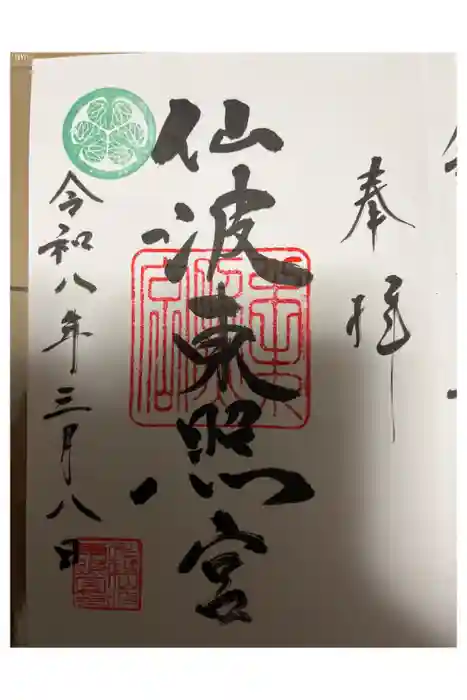 奉拝
仙波東照宮
令和八年三月八日